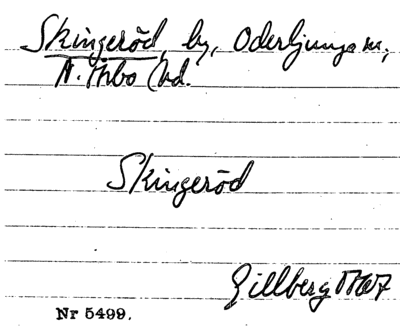 Skingeröd, by, Oderljunga sn,
N. Åsbo hd.
Skingeröd
Gillberg 1767
Nr 5499.